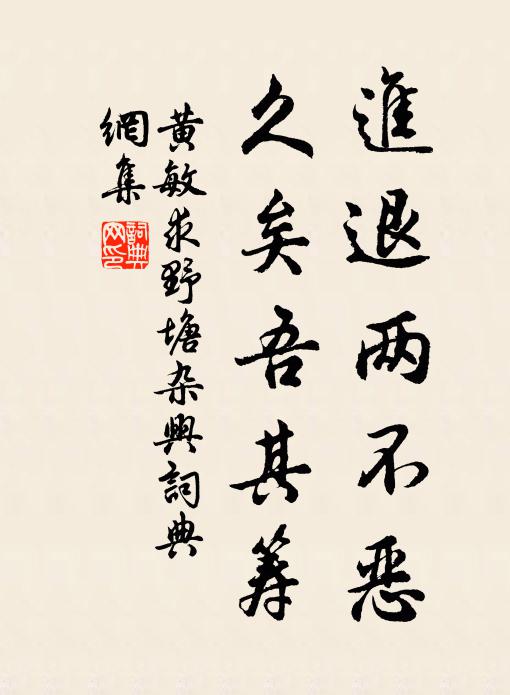 進退两不恶
久矣吾其筭
黄敏求野塘杂興詞典
網集
詞典
网印